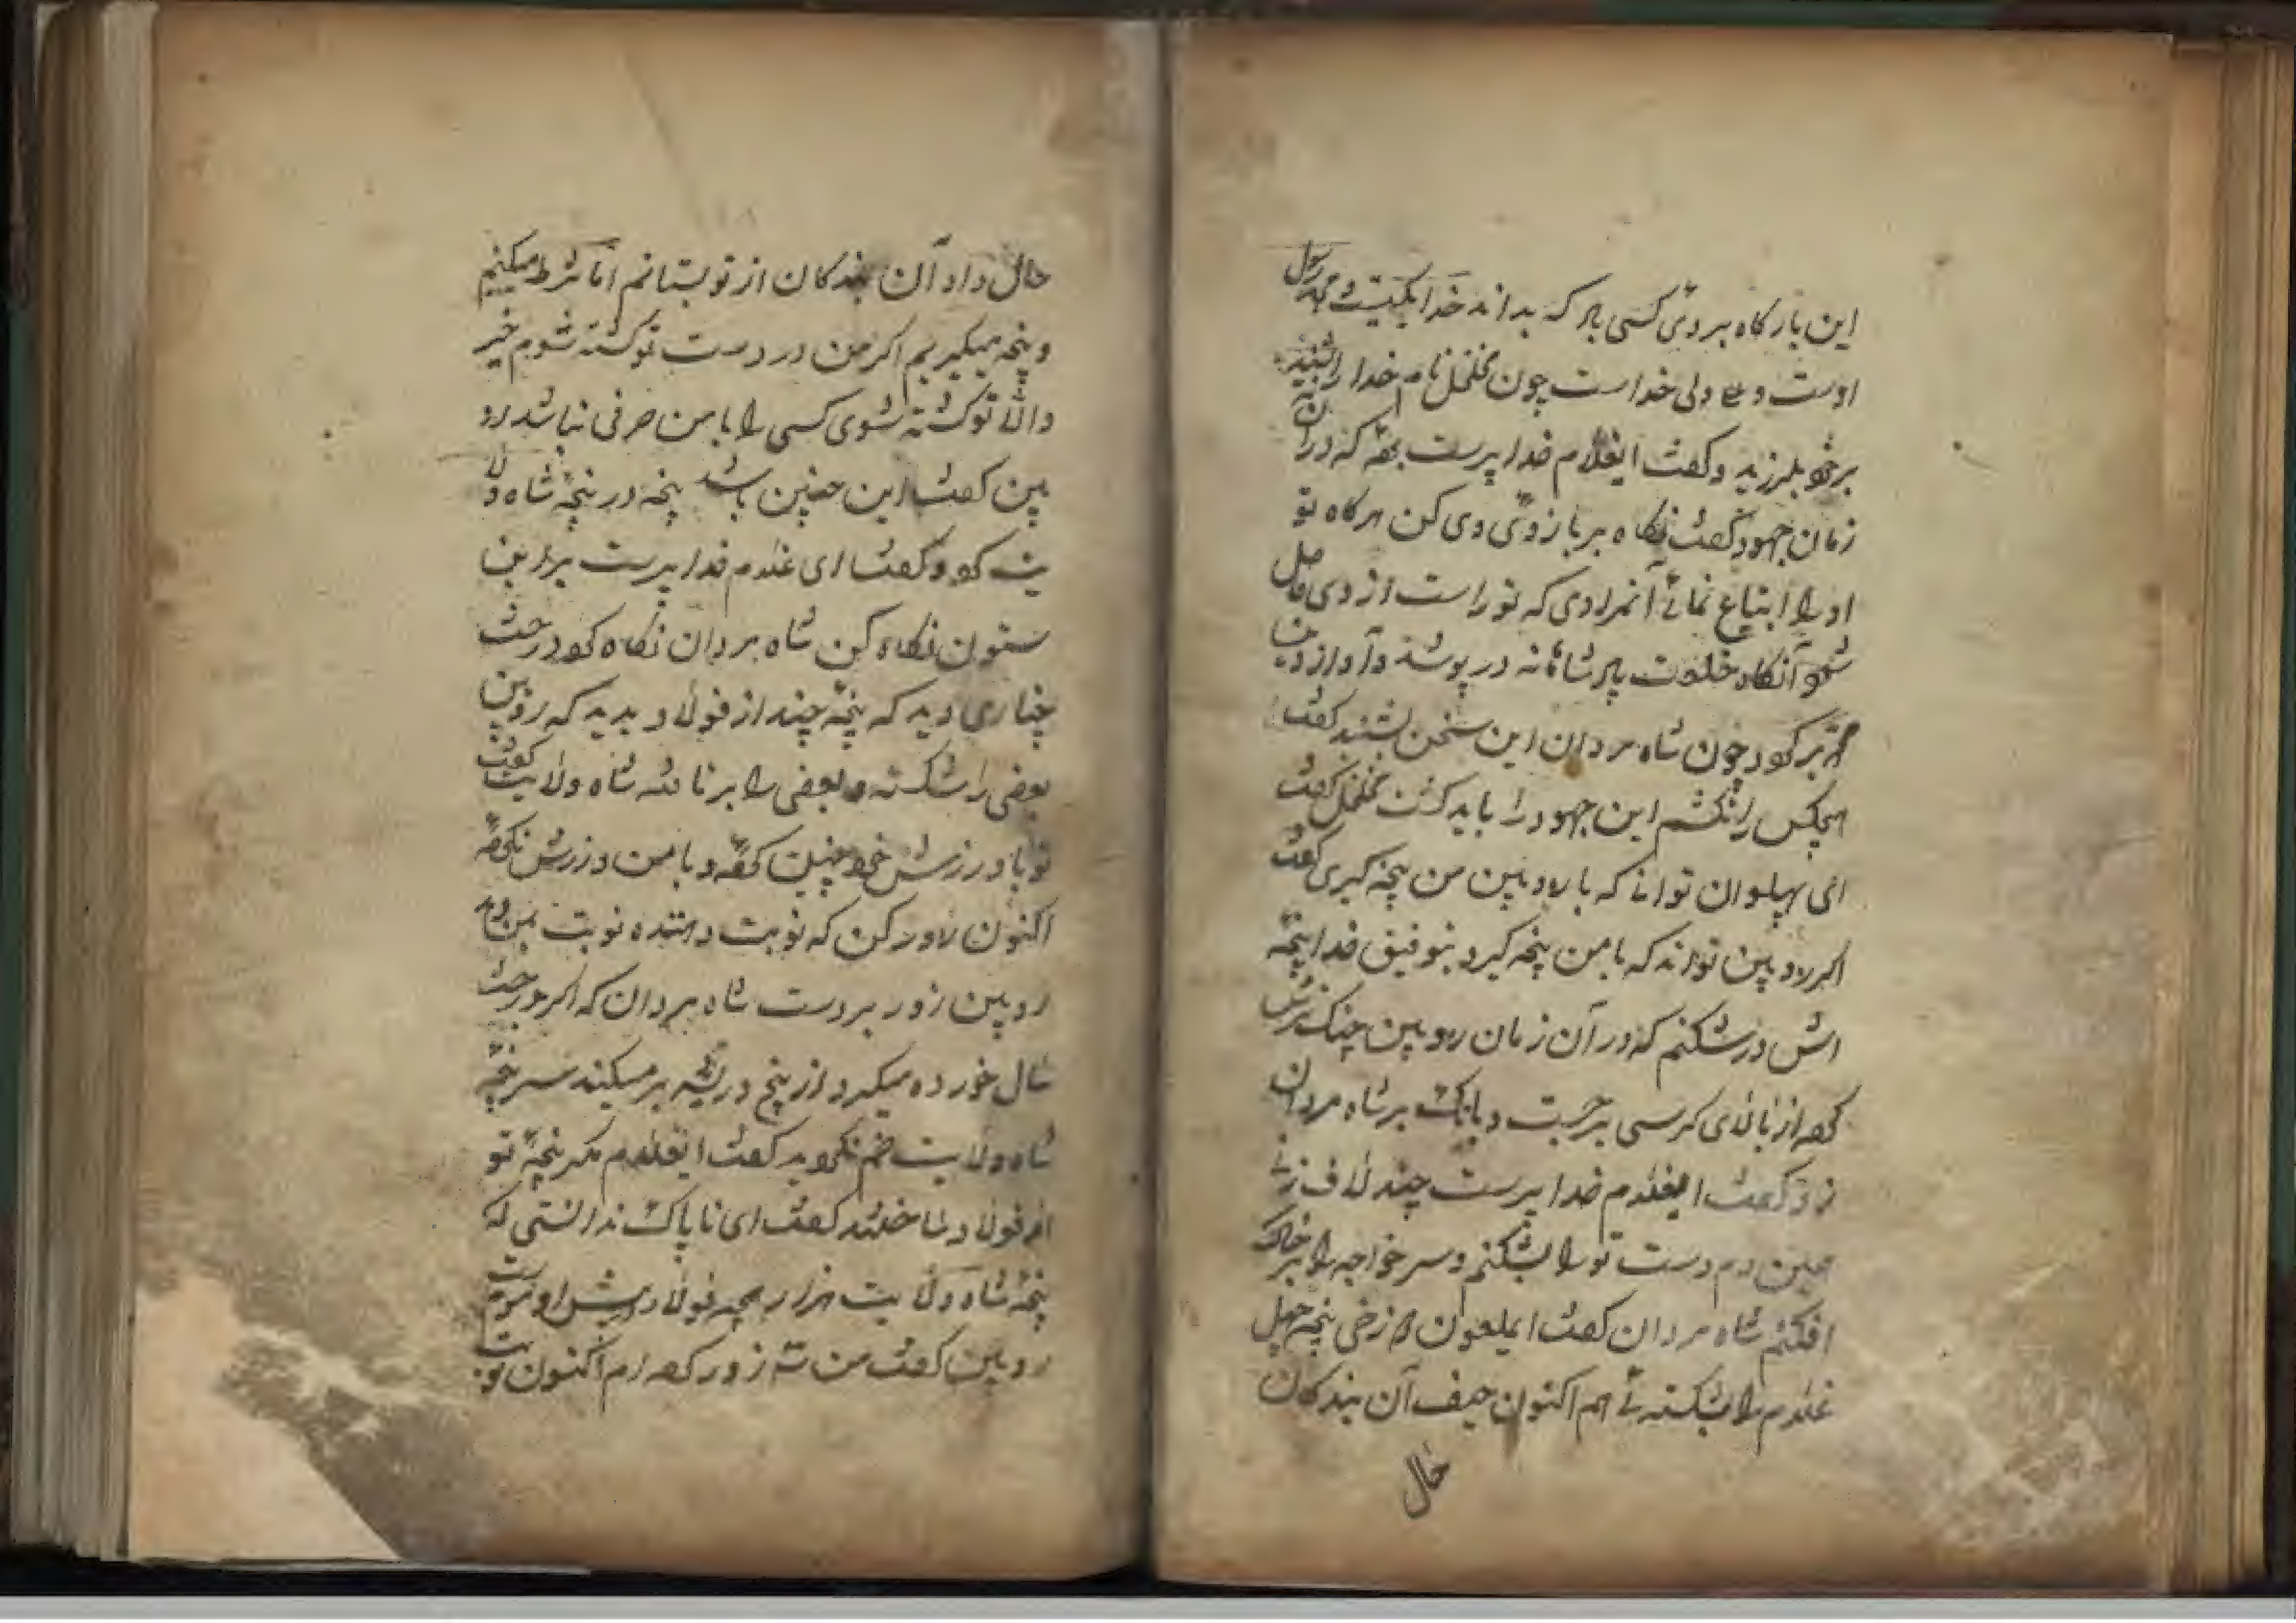 این بارگاه بر دی کسی بار که بداند خدا یکیست محمد رسول
اوست و ولی خداست چون مخلخل نام خدا را شنید
بر خو بلرزید و گفت ایغلام خدا پرست که در آن
زمان جهود گفت نگاه بر بازوی وی کن هر گاه تو
او را ابتیاع نمائی آنمرادی که تو راست از وی حاصل
شو آنگاه خلوت شاهانه در پوشد و آواز دین
محمد بر چون شاه مردان این سخن بشنید گفت
هیچکس را نکشم این جهود را باید کشت مخلخل گفت
ای پهلوان توانی که با رویین من پنجه گیری گفت
اگر رویین تواند که با من پنجه گیرد بتوفیق خدا پنجه
اش در شکنم که در آن زمان رویین چنک
از بالای کرسی برجست و بانک بر شاه مردان
زد گفت ایغلام خدا پرست چند لاف زنی
همین دم دست تو را بشکنم و سر خواجه را بر خاک
افکنم شاه مردان گفت ایملعون پنجه چهل
غلام را شکسته ئی هم اکنون حیف آن بندکان
حال
حال داد آن بندکان از تو بستانم اما شرط میکنیم
و پنجه میگیریم اگر من در دست تو کشته شوم خیر
والا تو کشته شوی کسی را با من حرفی نباشد رو
یین گفت این چنین باشد پنجه در پنجه شاه ولا
یت و گفت ای غلام خدا پرست برین
ستون نگاه کن شاه مردان نگاه درخت
چناری دید که پنجه چند از فولاد بدید که رویین
بعضی را شکسته و بعضی را بر تافته شاه ولایت گفت
تو با ورزش خو چنین و با من ورزش
اکنون زور کن که نوبت دهنده نوبت بمن داد
رویین زور بر دست شاه مردان که اگر درخت
سال خورده میگیرد از بیخ و ریشه بر میکند سر پنجه
شاه ولایت خم گفت ایغلام مگر پنجه تو
از فولاد ساختند گفت ای ناپاک ندانستی که
پنجه شاه ولایت هزار پنجه فولاد پیش او موم است
رویین گفت من سه زور اکنون نوبت